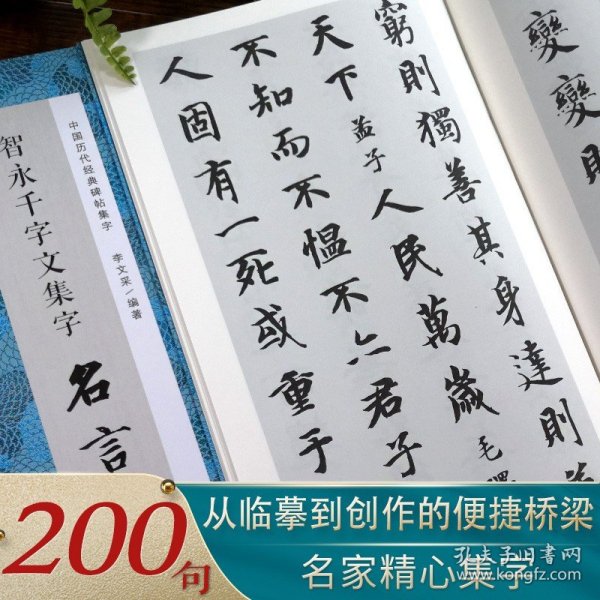 變變則
窮則獨善其身達則
天下 孟子 人民萬歲 毛澤
不知而不愠不亦君子
人固有一死或重于
中国历代经典碑帖集字 李文采/编著
智永千字文集字
名言
200句
从临摹到创作的便捷桥梁
名家精心集字
孔夫子旧书网
www.kongfz.com